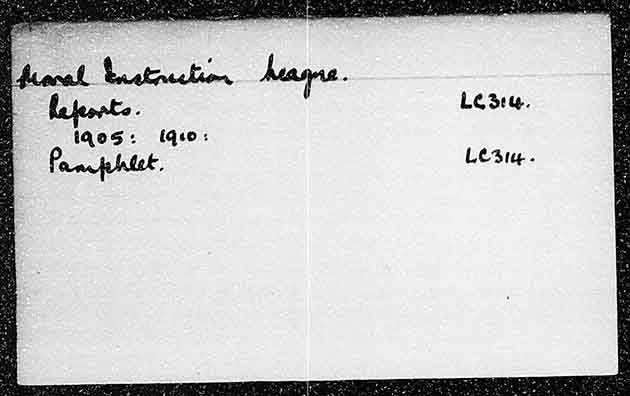 Moral Instruction League.
Reports. LC314.
1905: 1910:
Pamphlet. LC314.